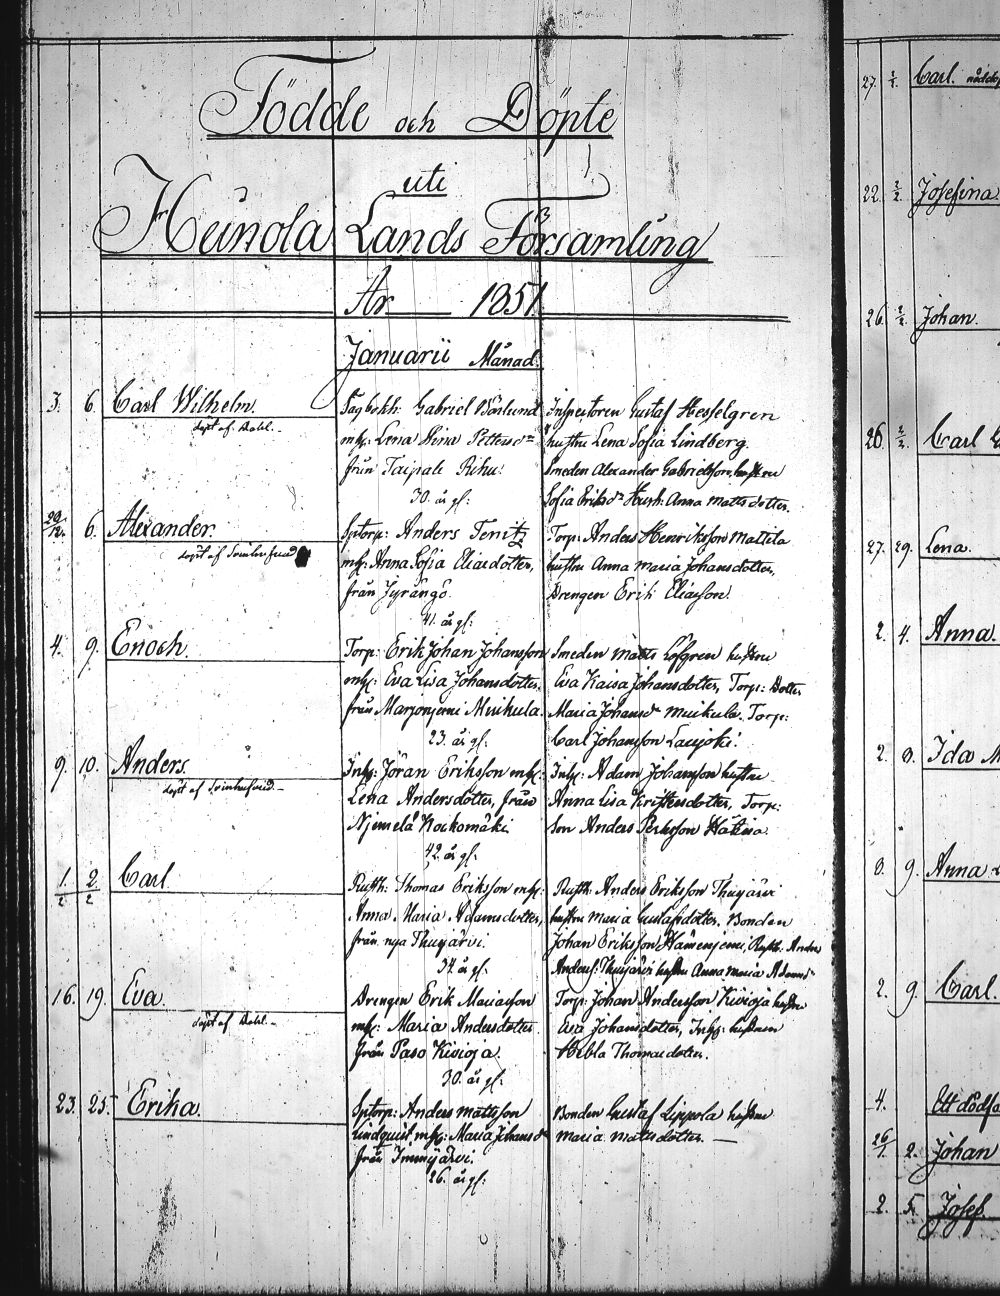 Födde och Döpte
uti
Heinola Lands Församling
År 1851
Januarii Månad.
3. 6. Carl Wilhelm.
döpt af Dahl.
Gabriel
mh: Lena Stina Petters dr
från Taipale Rihu.
30. år gl:
Inspectoren Gustaf Hesselgren
hustru Lena Sofia Lindberg
Smeden Alexander Gabrielsson, hustru
Sofia Eriks dr Hush: Anna Matts dotter.
29/12. 6. Alexander.
döpt af
Sptorp: Anders Tenitz
mh: Anna Sofia Eliasdotter,
från Jyrängö.
41. år gl:
Torp: Anders Henriksson Mattila
hustru Anna Maria Johansdotter,
Drengen Erik Eliasson.
4. 9. Enoch.
Torp: Erik Johan Johansson
mh: Eva Lisa Johansdotter,
från Marjonjemi Muikula.
23. år gl:
Smeden Matts Löfgren hustru
Eva Kaisa Johansdotter, Torp: Dotter
Maria Johans dr Muikula. Torp:
Carl Johansson Laujoki.
9. 10. Anders.
döpt af
Inhs: Jöran Eriksson mh:
Lena Andersdotter, från
Njemelä Kockomäki
42. år gl:
Inhs: Adam Johansson hustru
Anna Lisa Kristersdotter, Torp:
Son Anders Persson Hätinä.
1/2 2/2 Carl.
Rusth: Thomas Eriksson mh:
Anna Maria Adamsdotter,
från nya Thusjärvi.
34. år gl:
Rusth: Anders Eriksson Thusjärvi
hustru Maria Gustafsdotter, Bonden
Johan Eriksson Hämenjemi, Rusth: Anders
Anderss: Thusjärvi hustru Anna Maria Adams dr
16. 19. Eva.
döpt af Dahl.
Drengen Erik Mariasson
mh: Maria Andersdotter
från Paso Kivioja.
30. år gl:
Torp: Johan Andersson Kivioja hustru
Johansdotter, Inhs: hustrun
Hebla Thomasdotter.
23. 25. Erika.
Sptorp: Anders Mattsson
Lindquist mh: Maria Johans dr
från Immjärvi.
26. år gl:
Bonden Gustaf Lippola hustru
Maria Mattsdotter.
27. Carl.
22. 2/2. Josefina
26. 2/2. Johan.
26. 2/2. Carl G
27. 29. Lena.
2. 4. Anna.
2. 8. Ida M
8. 9. Anna
2. 9. Carl.
4. Ett dödfö
26/1. 2. Johan
2. 5. Josef.